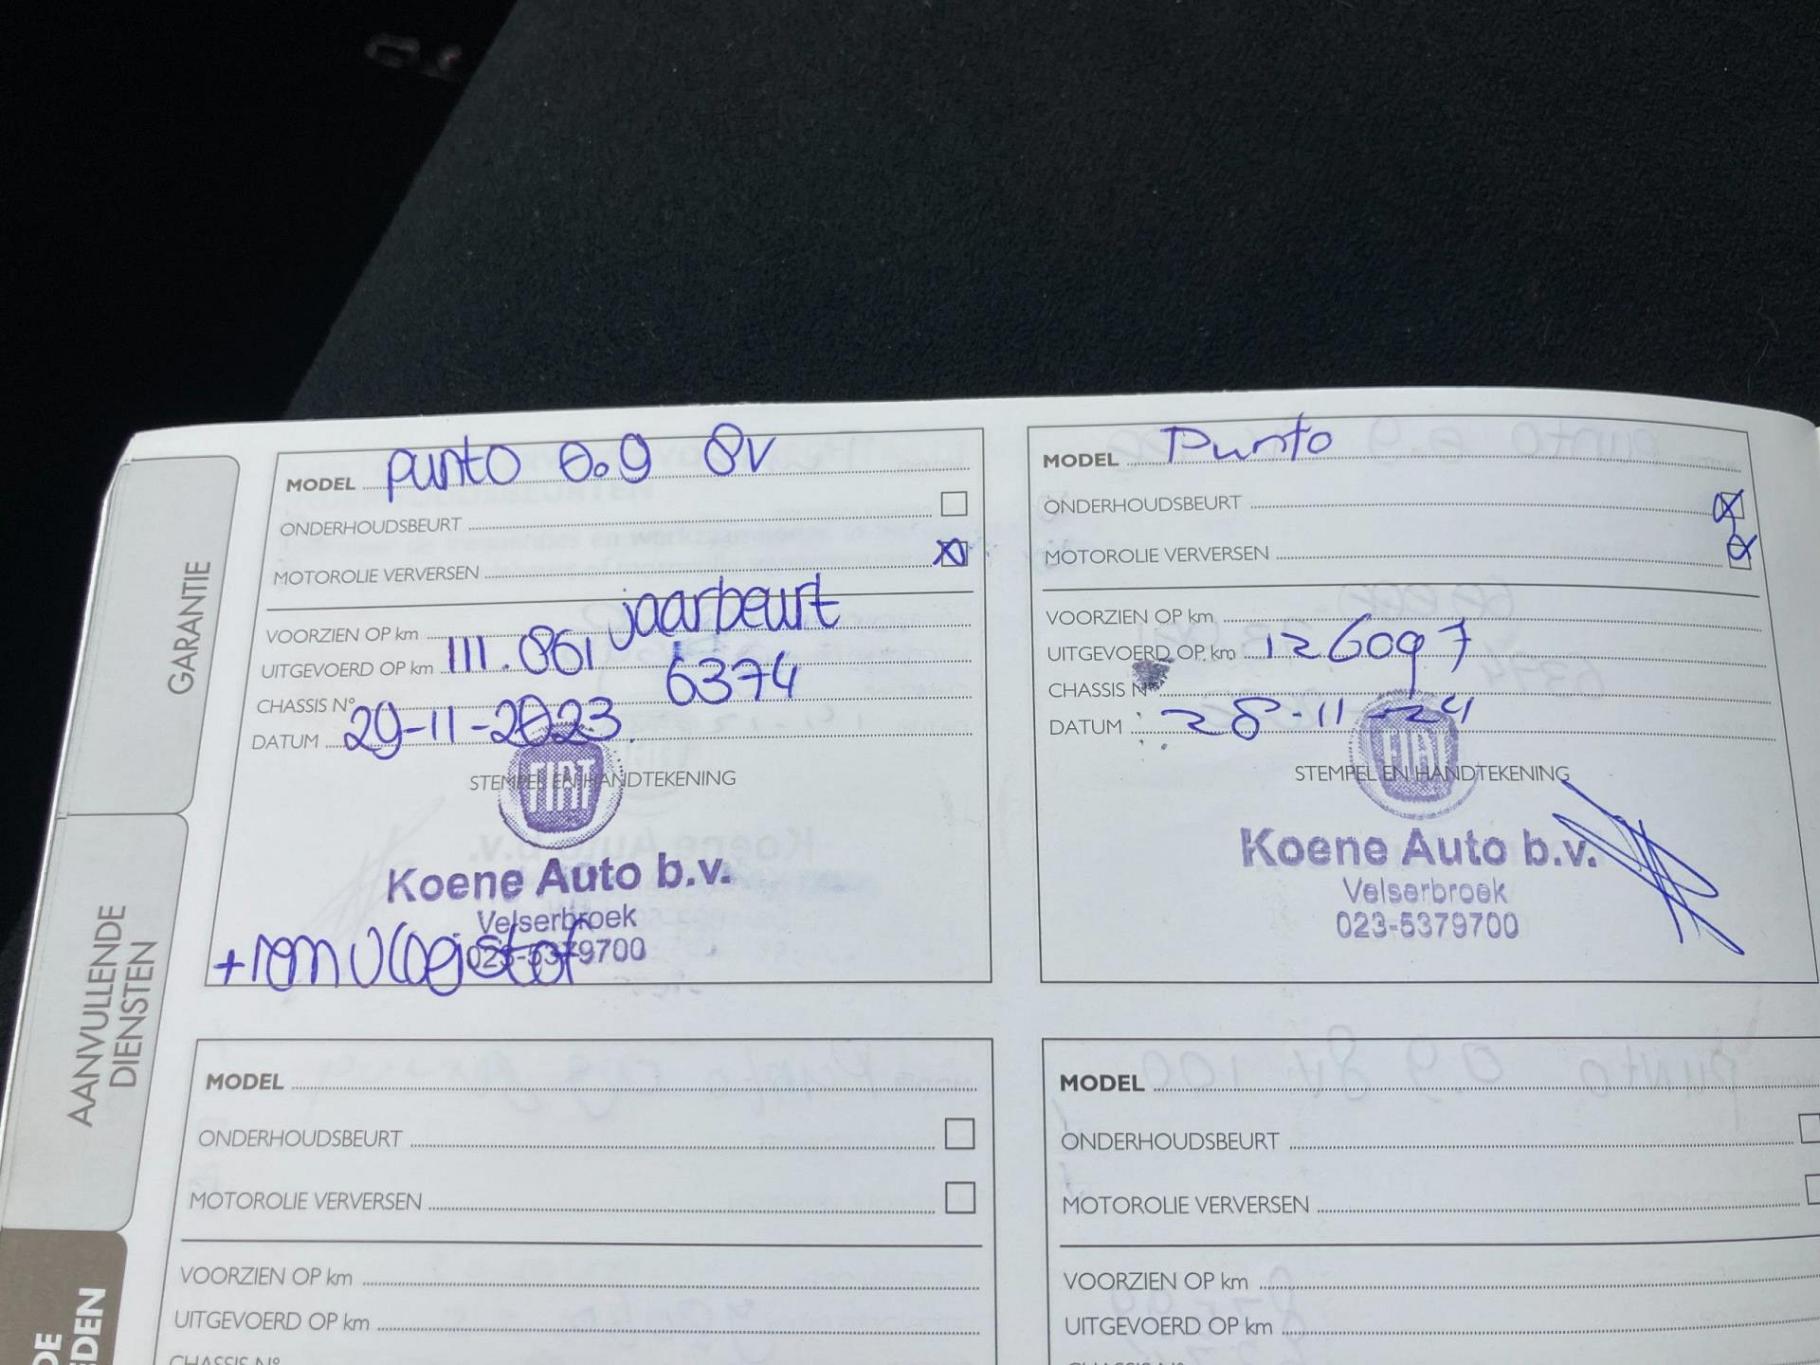 GARANTIE
AANVULLENDE
DIENSTEN
MODEL punto 0.9 8v
ONDERHOUDSBEURT
MOTOROLIE VERVERSEN
jaarbeurt
VOORZIEN OP km
UITGEVOERD OP km 111.861
CHASSIS N° 6374
DATUM 29-11-2023
STEMPEL EN HANDTEKENING
FIAT
Koene Auto b.v.
Velserbroek
023-5379700
+remvloeistof
MODEL Punto
ONDERHOUDSBEURT
MOTOROLIE VERVERSEN
VOORZIEN OP km
UITGEVOERD OP km 126097
CHASSIS N°
DATUM : 28-11-24
STEMPEL EN HANDTEKENING
FIAT
Koene Auto b.v.
Velserbroek
023-5379700
MODEL
ONDERHOUDSBEURT
MOTOROLIE VERVERSEN
VOORZIEN OP km
UITGEVOERD OP km
CHASSIS N°
MODEL
ONDERHOUDSBEURT
MOTOROLIE VERVERSEN
VOORZIEN OP km
UITGEVOERD OP km
CHASSIS N°